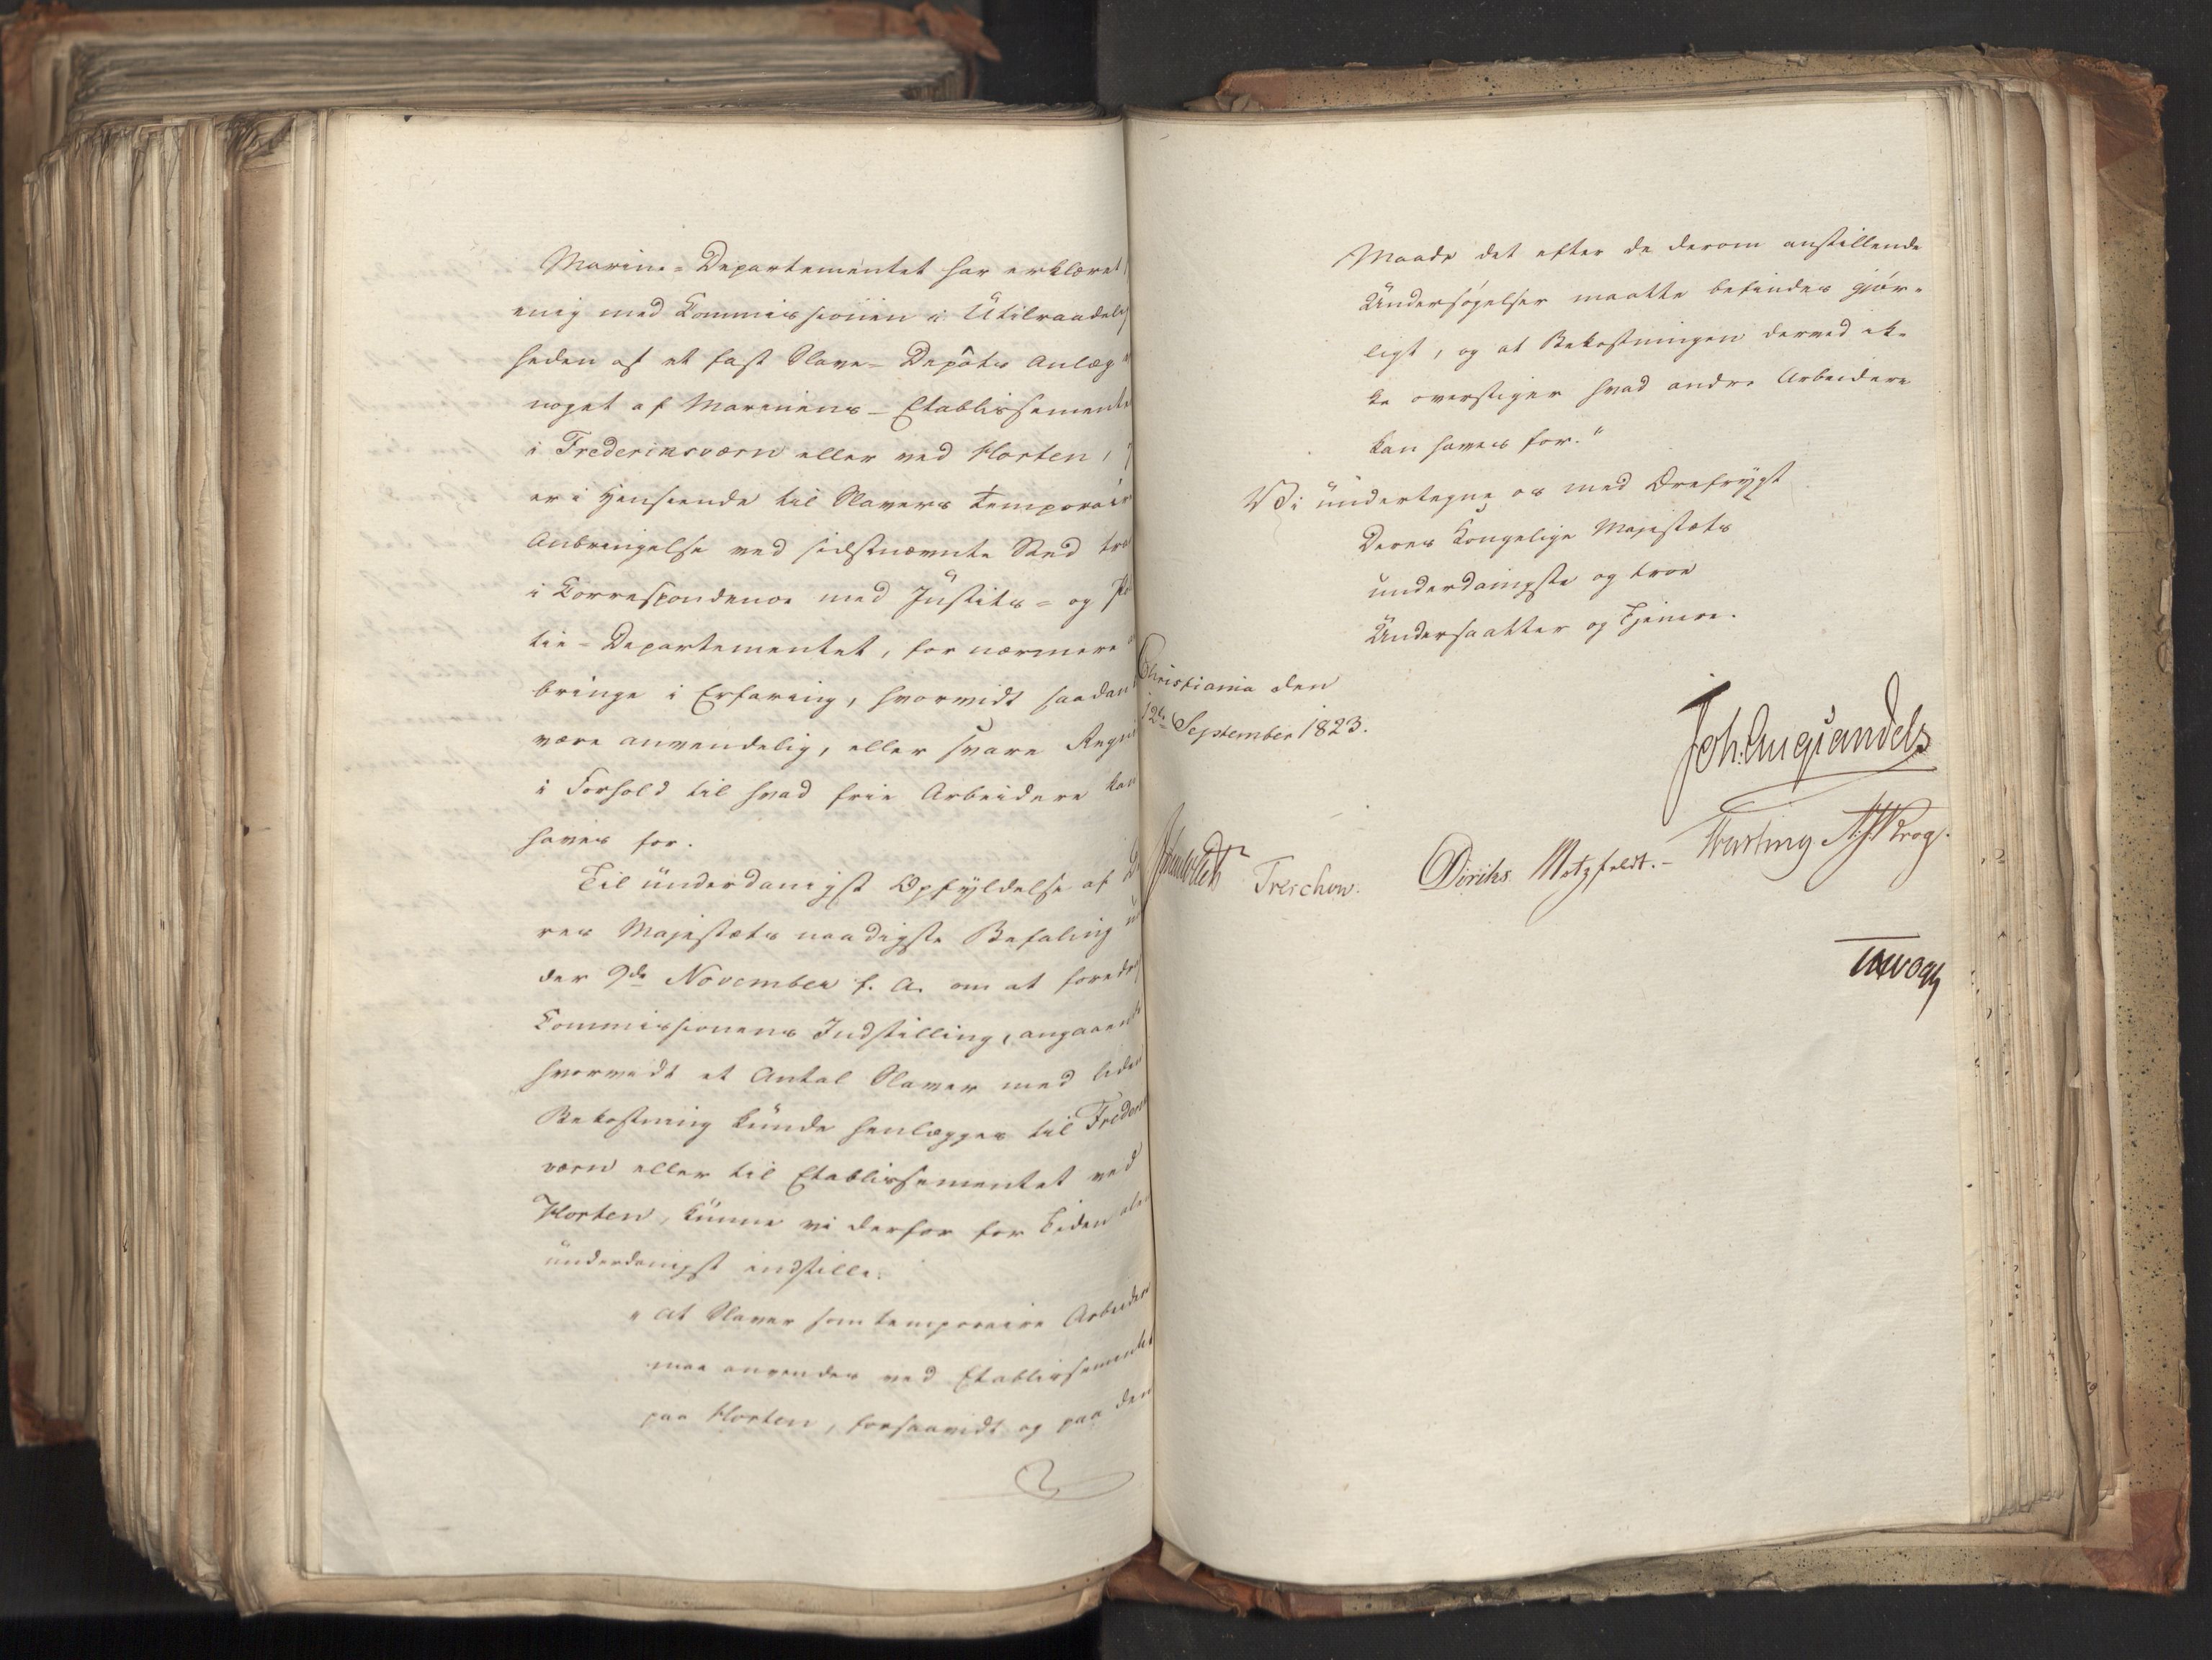 Marine-Departementet har erklæret
enig med Kommissionen i Utilraadelig
heden af et fast Slave-Depôts Anlæg
noget af Marinens-Etablissementer
i Frederiksværn eller ved Horten,
er i Henseende til Slavers temporair
Anbringelse ved sidstnævnte Sted traa
i Correspondence med Justits- og Po
tie-Departementet, for nærmere
bringe i Erfaring, hvorvidt saadan
være anvendelig, eller svare Regni
i Forhold til hvad frie Arbeidere kan
haves for.
Til underdanigst Opfyldelse af De
res Majestæts naadigste Befaling un
der 9de November f. A. om at foredra
Commissionens Indstilling, angaaende
hvorvidt et Antal Slaver med liden
Bekostning kunde henlægges til Freder
værn eller til Etablissementet ved
Horten, kunne vi derfor for Tiden alen
underdanigst indstille:
"At Slaver som temporaire Arbeidere
maa anvendes ved Etablissementet
paa Horten, forsaavidt og paa den
Maade det efter de derom anstillende
Undersøgelser maatte befindes gjør-
ligt, og at Bekostningen derved ik-
ke overstiger hvad andre Arbeidere
kan haves for."
Vi undertegne os med Ærefrygt
Deres Kongelige Majestæts
underdanigste og troe
Undersaatter og Tjenere.
Christiania den
12te September 1823.
Joh. Aug. Sandels
Sommerhielm Treschow. Diriks Motzfeldt.- Fasting Krog.
Vogt